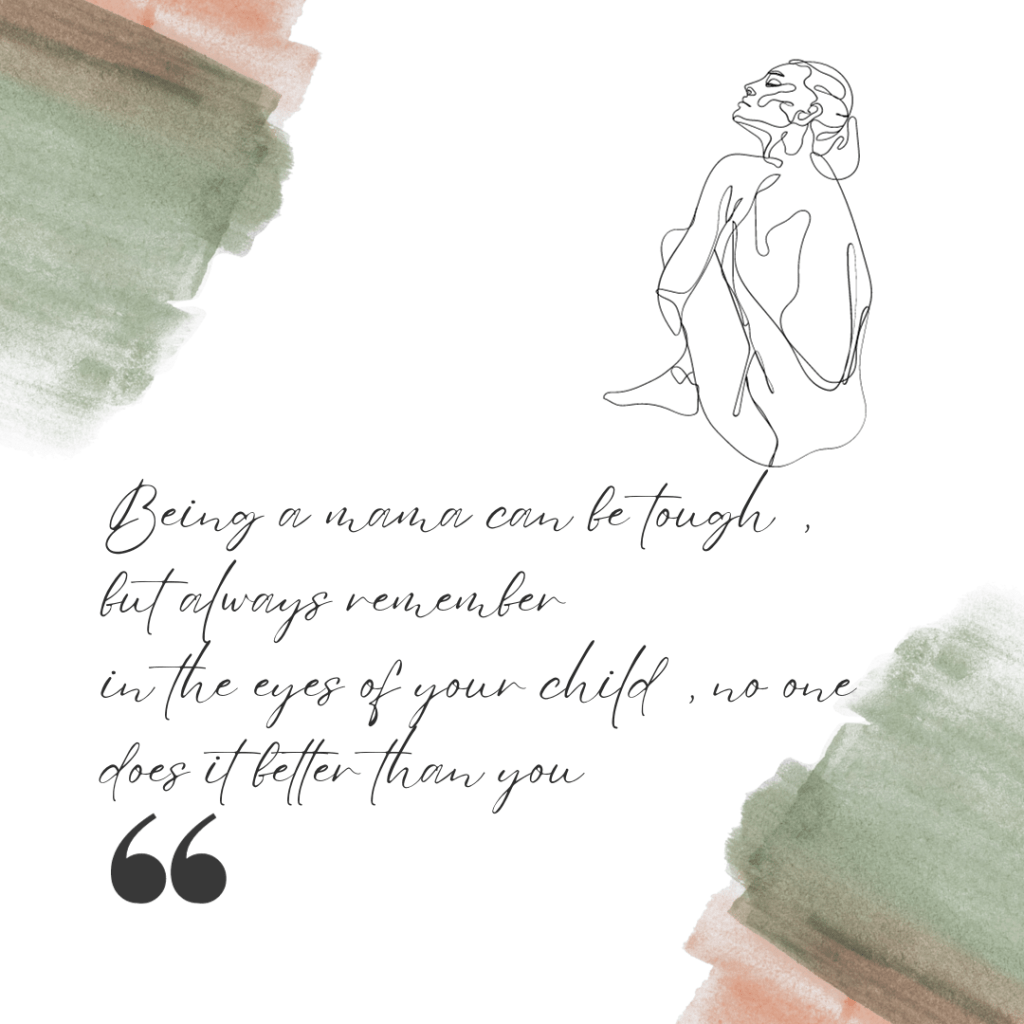 Being a mama can be tough ,
but always remember
in the eyes of your child , no one
does it better than you
“